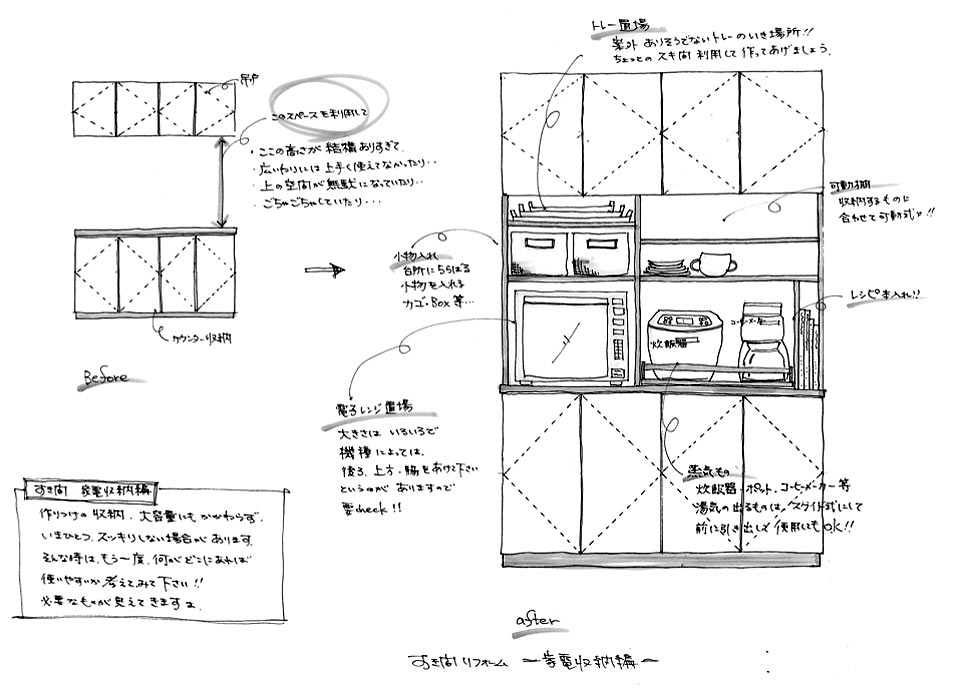 トレー置場
案外 ありそうでないトレーのいき場所!!
ちょっとの スキ間 利用して 作ってあげましょう.
吊戸
このスペースを利用して
・ここの高さが 結構ありすぎて.
・広いわりには 上手く使えてなかったり・・
・上の空間が無駄になっていたり・・
・ごちゃごちゃしていたり・・・
カウンター収納
Before
可動棚
収納するものに
合わせて可動式に!!
小物入れ
台所にちらばる
小物を入れる
カゴ・Box 等…
レシピ本入れ!!
コーヒーメーカー
炊飯器
電子レンジ置場
大きさは いろいろで
機種によっては、
後ろ、上方・脇をあけて下さい
というのが ありますので
要check!!
蒸気もの
炊飯器・ポット、コーヒーメーカー 等
湯気の出るものは、スライド式にして
前に引き出して 使用してもOK!!
すき間 家電収納編
作りつけの収納、大容量にもかかわらず、
いまひとつ、スッキリしない場合があります.
そんな時は、もう一度、何がどこにあれば
使いやすいか 考えてみて下さい!!
必要なものが見えてきますよ.
after
すき間リフォーム ー家電収納編ー